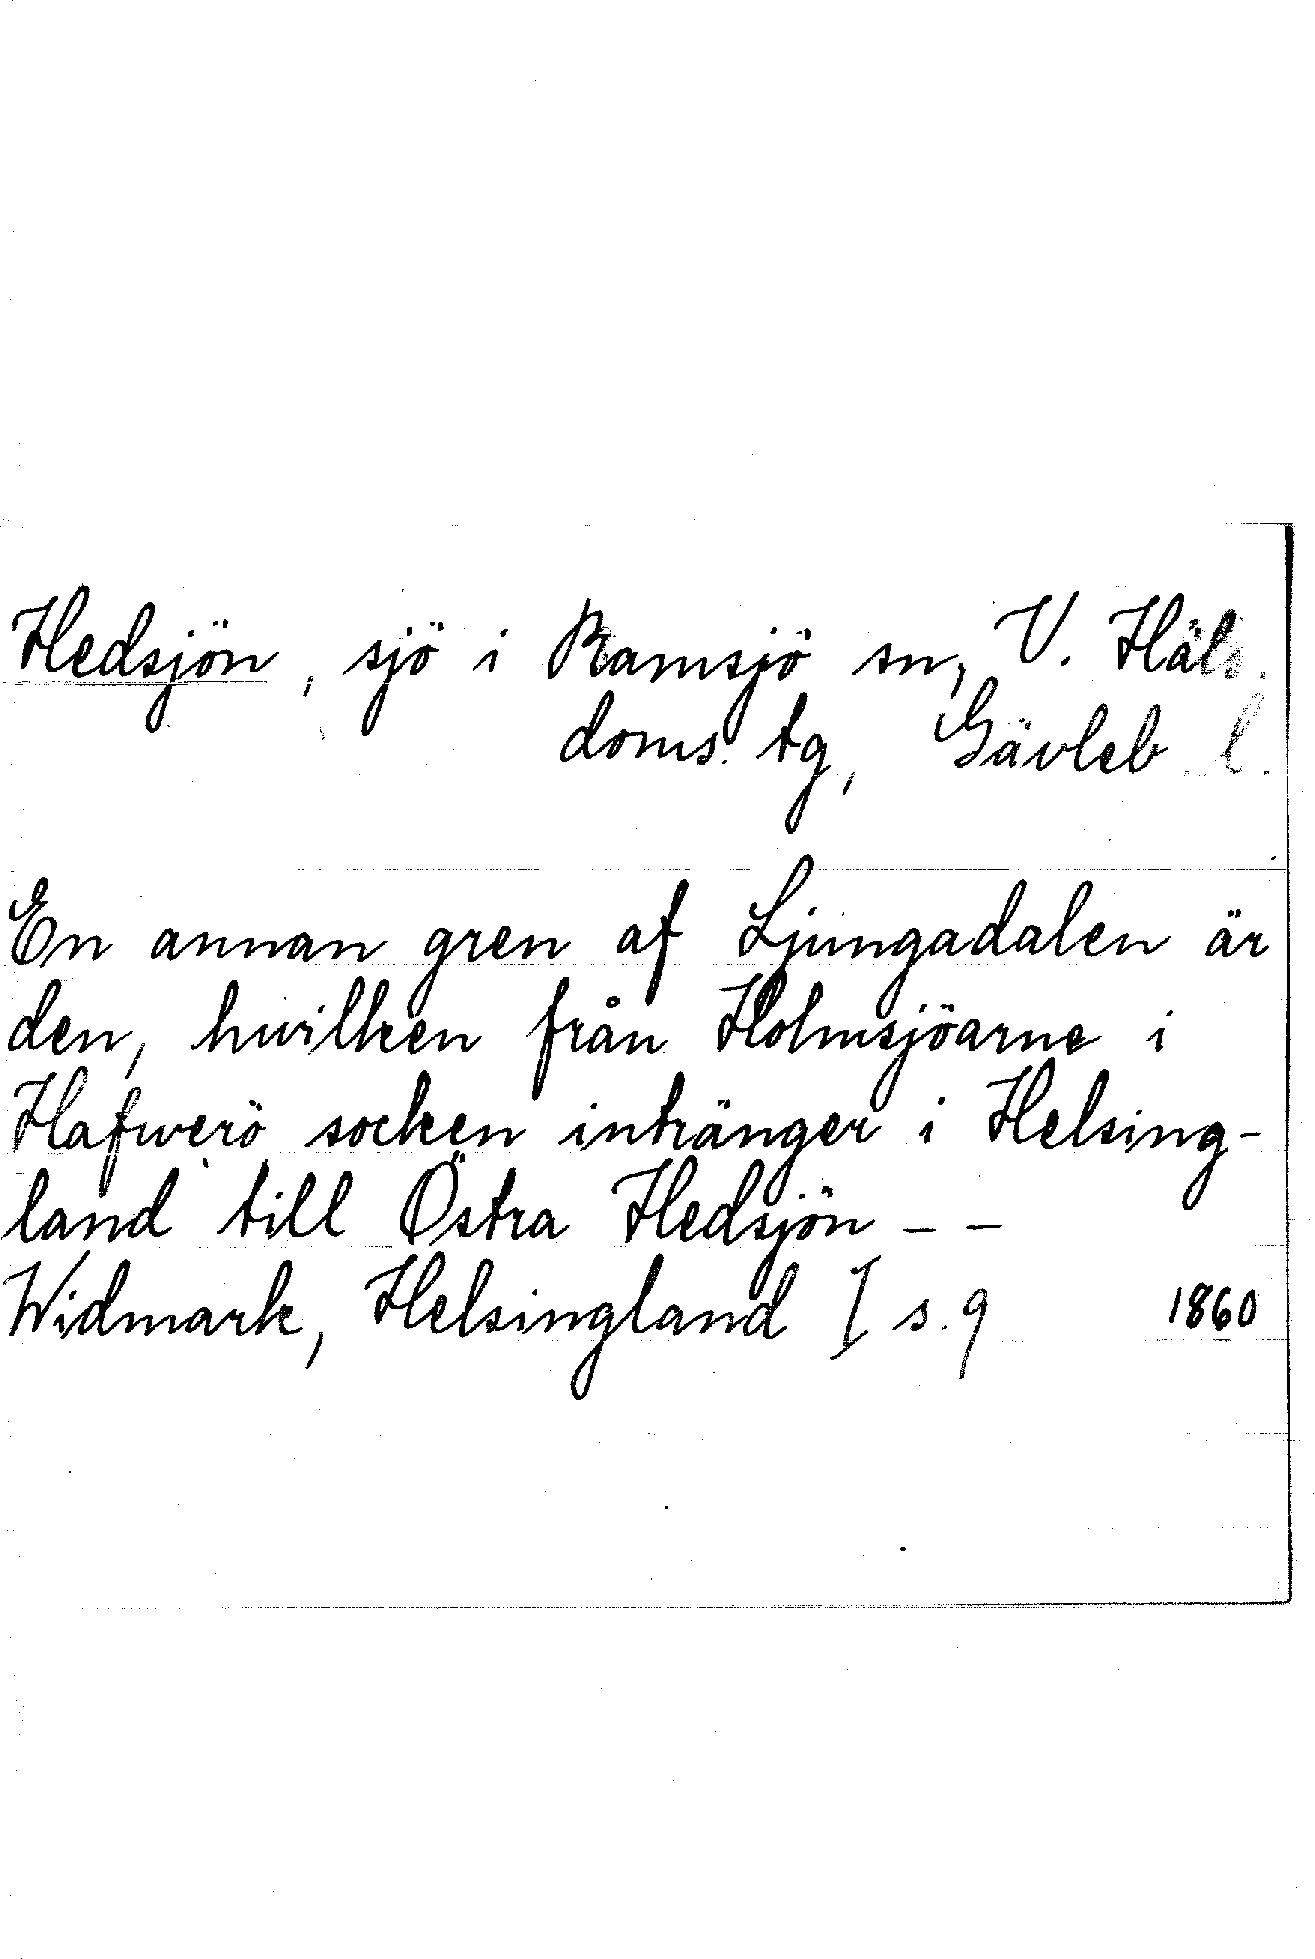 Hedsjön, sjö i Ramsjö sn, V. Häls.
doms. tg, Gävleb l.
En annan gren af Ljungadalen är
den, hvilken från Holmsjöarne i
Hafverö socken intränger i Helsing-
land till Östra Hedsjön - -
Widmark, Helsingland I s. 9 1860